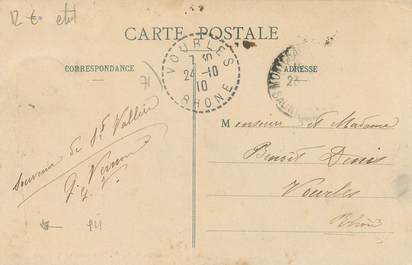 12 €
CARTE POSTALE
CORRESPONDANCE
ADRESSE
VOURLES
24 - 10
10
RHONE
Souvenir de St Vallier
Monsieur et Madame
Benoît Denis
Vourles
Rhône